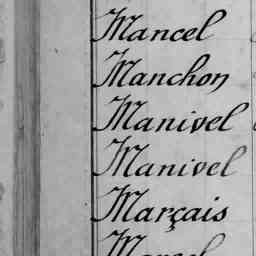 Mancel
Manchon
Manivel
Manivel
Marçais